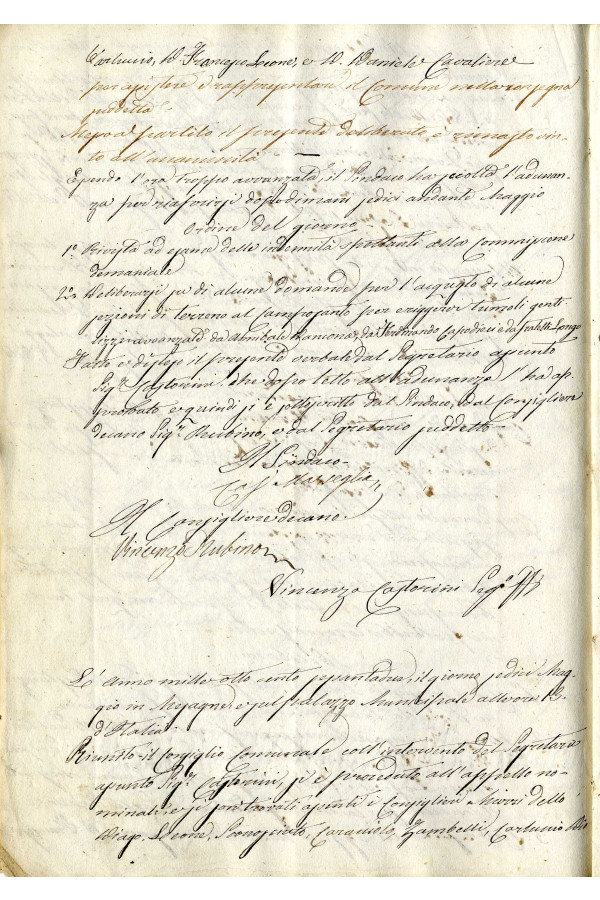 Carluccio, D. Francesco Leone, e D. Daniele Cavaliere
per assistere e rappresentare il Comune nella consegna
suddetta.
Messo a partito il presente deliberato è rimasto vin-
to all'unanimità
Essendo l'ora troppo avvanzata, il Sindaco ha sciolto l'adunan-
za per riaversi dopodimani sedici andante Maggio
Ordine del giorno
1° Rivista ad esame delle indennità spettanti alla Commissione
demaniale
2° Deliberarsi su di alcune domande per l'acquisto di alcune
sezioni di terreno al camposanto per eriggere tumoli genti-
lizzi avvanzate da Annibale da Ferdinando Capodieci e da fratelli Longo
Fatto e disteso il presente verbale dal Segretario assunto
Sig.r Castorini, che dopo letto all'adunanza l'ha ap-
probato e quindi si è sottoscritto dal Sindaco, dal Consigliere
decano Sig.r Rubino, e dal Segretario suddetto
Il Sindaco
Marseglia
Il Consigliere decano
Vincenzo Rubino
Vincenzo Castorini Seg.o
L'Anno mille otto cento sessantadue, il giorno sedici Mag-
gio in Mesagne e sul palazzo Municipale alle ore
d'Italia
Riunito il Consiglio Comunale coll'intervento del Segretario
assunto Sig.r Castorini, si è proceduto all'appello no-
minale, e si son trovati assenti i Consiglieri Murri dello
Diago, Leone, Sconosciuto, Caraciolo, Zambelli, Carluccio